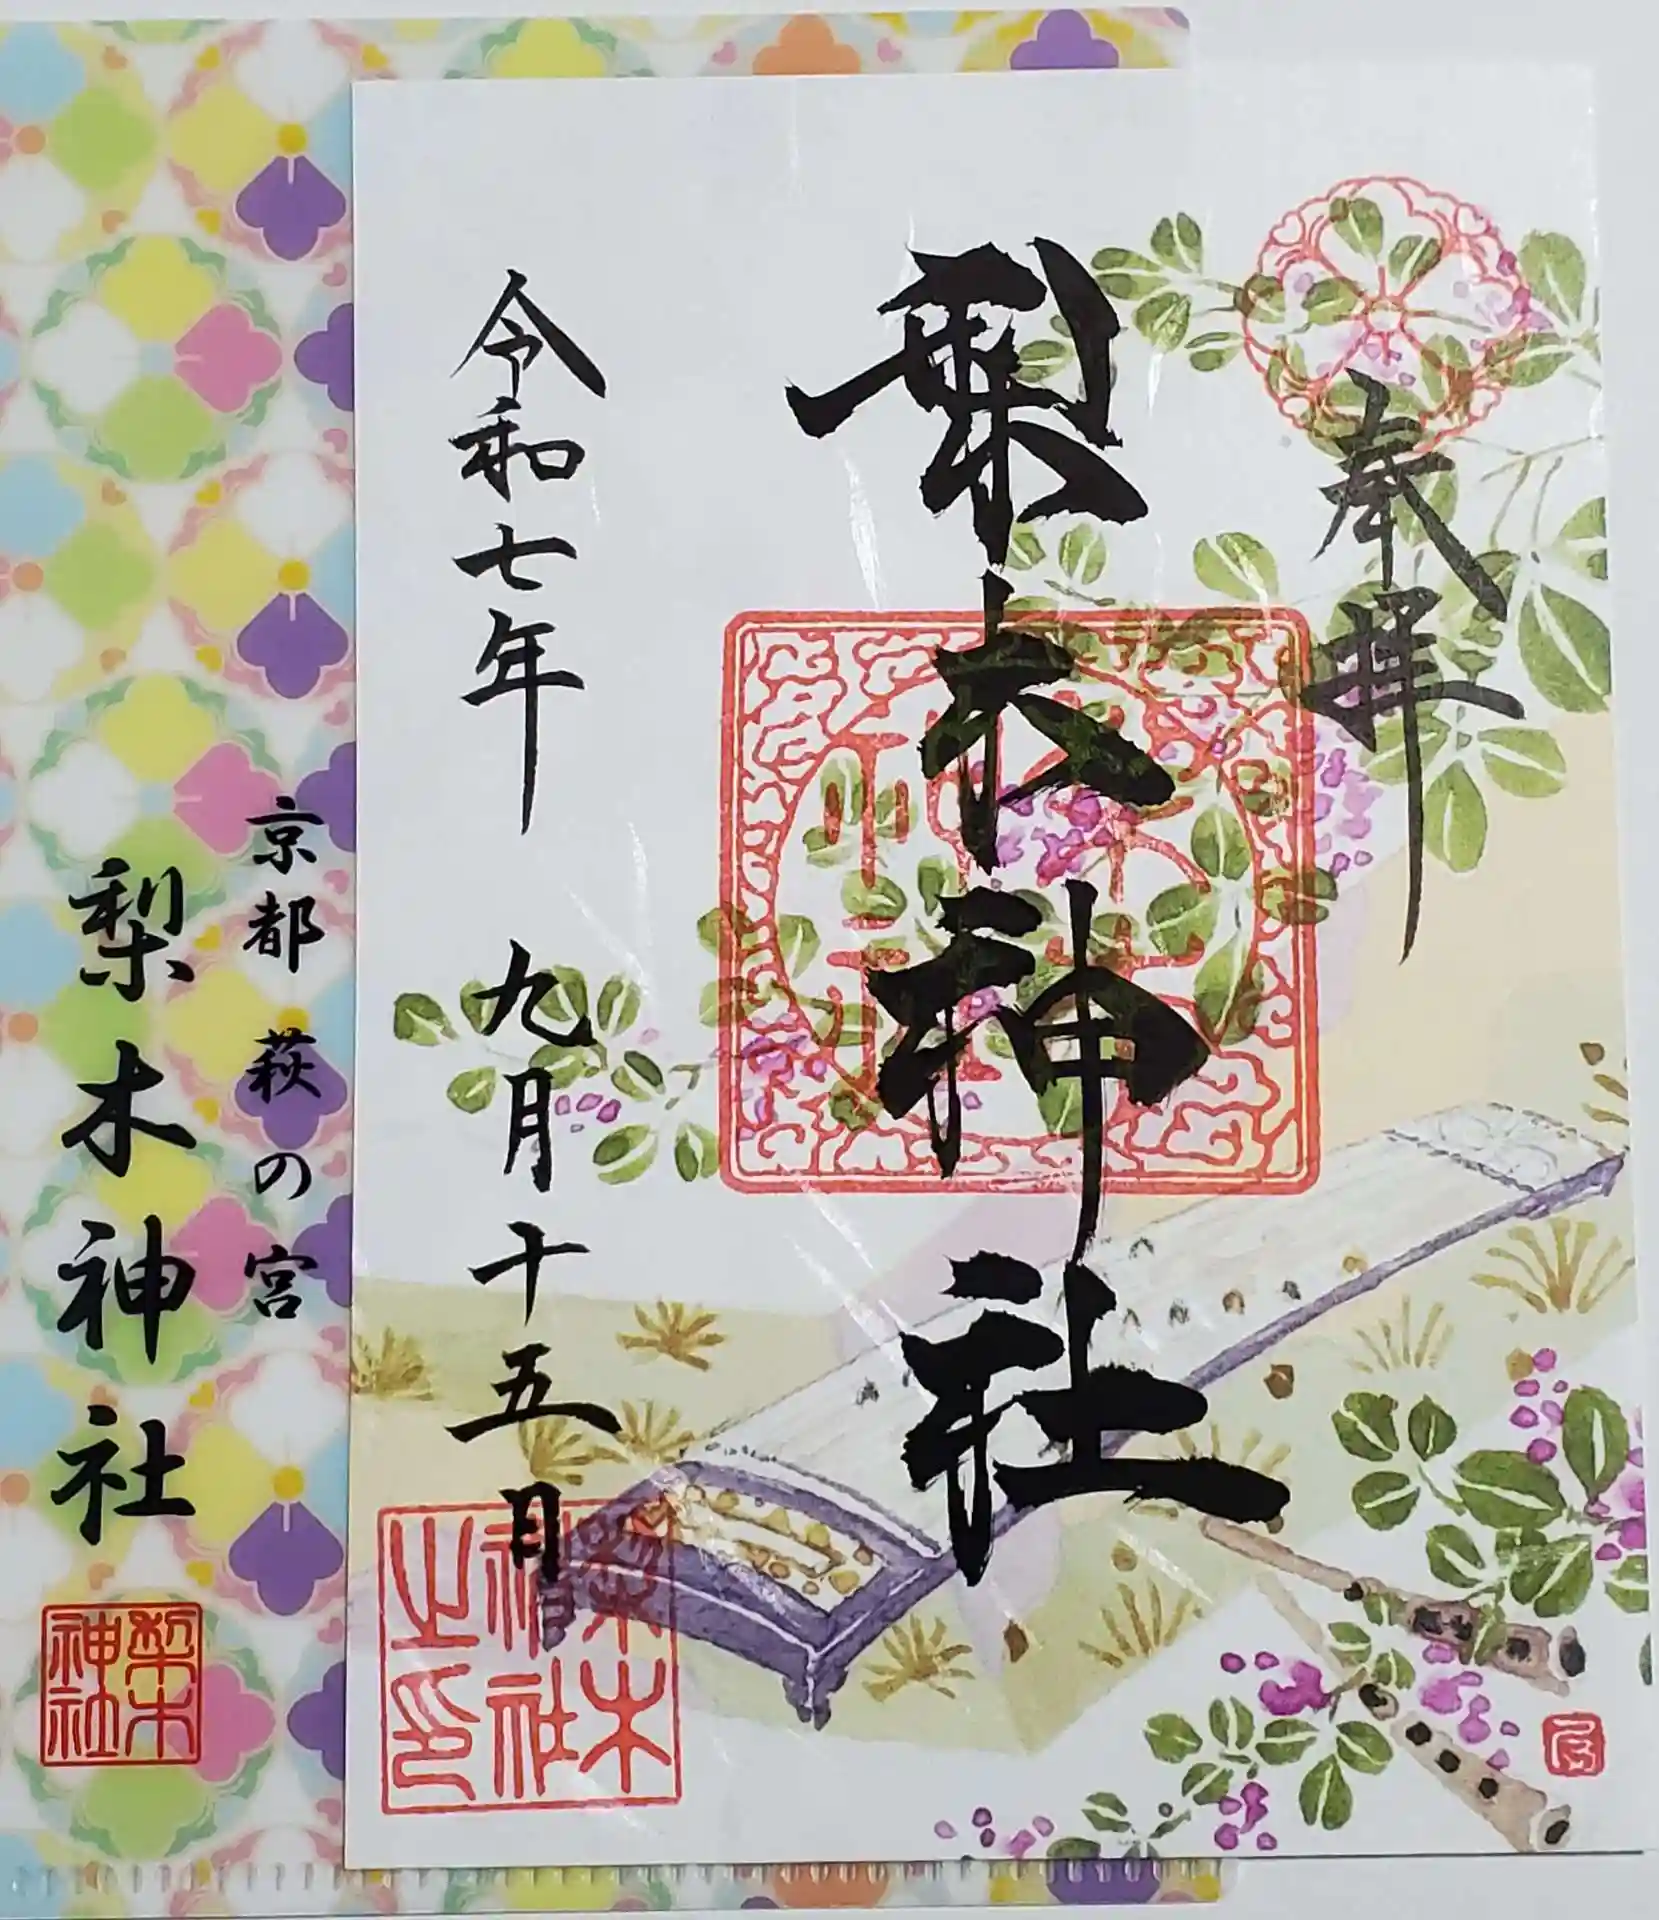 奉拝
梨木神社
令和七年 九月十五日
梨木
神社
之印
京都 萩の宮
梨木神社
梨木
神社